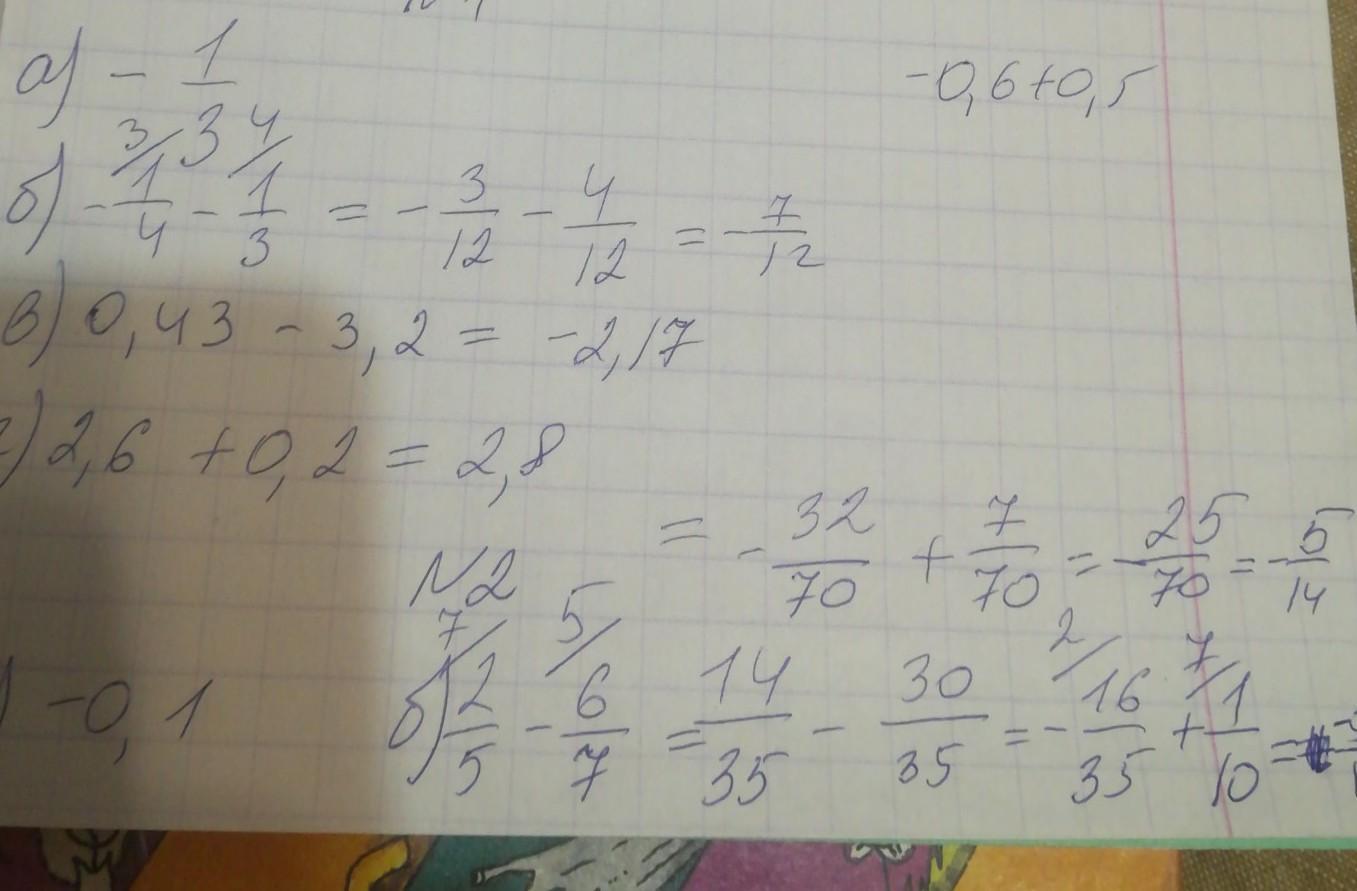 а) - 1/3
-0,6+0,5
3/ 4/
б) - 1/4 - 1/3 = - 3/12 - 4/12 = - 7/12
в) 0,43 - 3,2 = -2,17
г) 2,6 + 0,2 = 2,8
= - 32/70 + 7/70 = - 25/70 = - 5/14
N2
7/ 5/ 2/ 7/
) -0,1
б) 2/5 - 6/7 = 14/35 - 30/35 = - 16/35 + 1/10 =